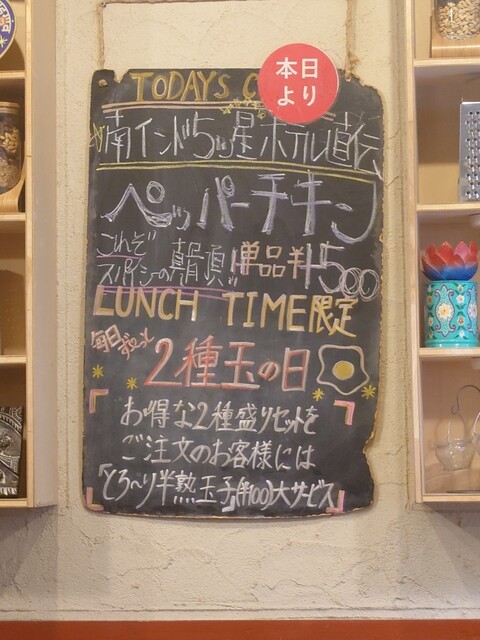 TODAY'S C
本日
より
南インド5ッ星ホテル直伝
ペッパーチキン
これぞ
スパイシーの真骨頂!! 単品¥1500
LUNCH TIME限定
毎日ずーっと
2種玉の日
お得な2種盛りセットを
ご注文のお客様には
「とろ〜り半熟玉子」(¥100)大サービス